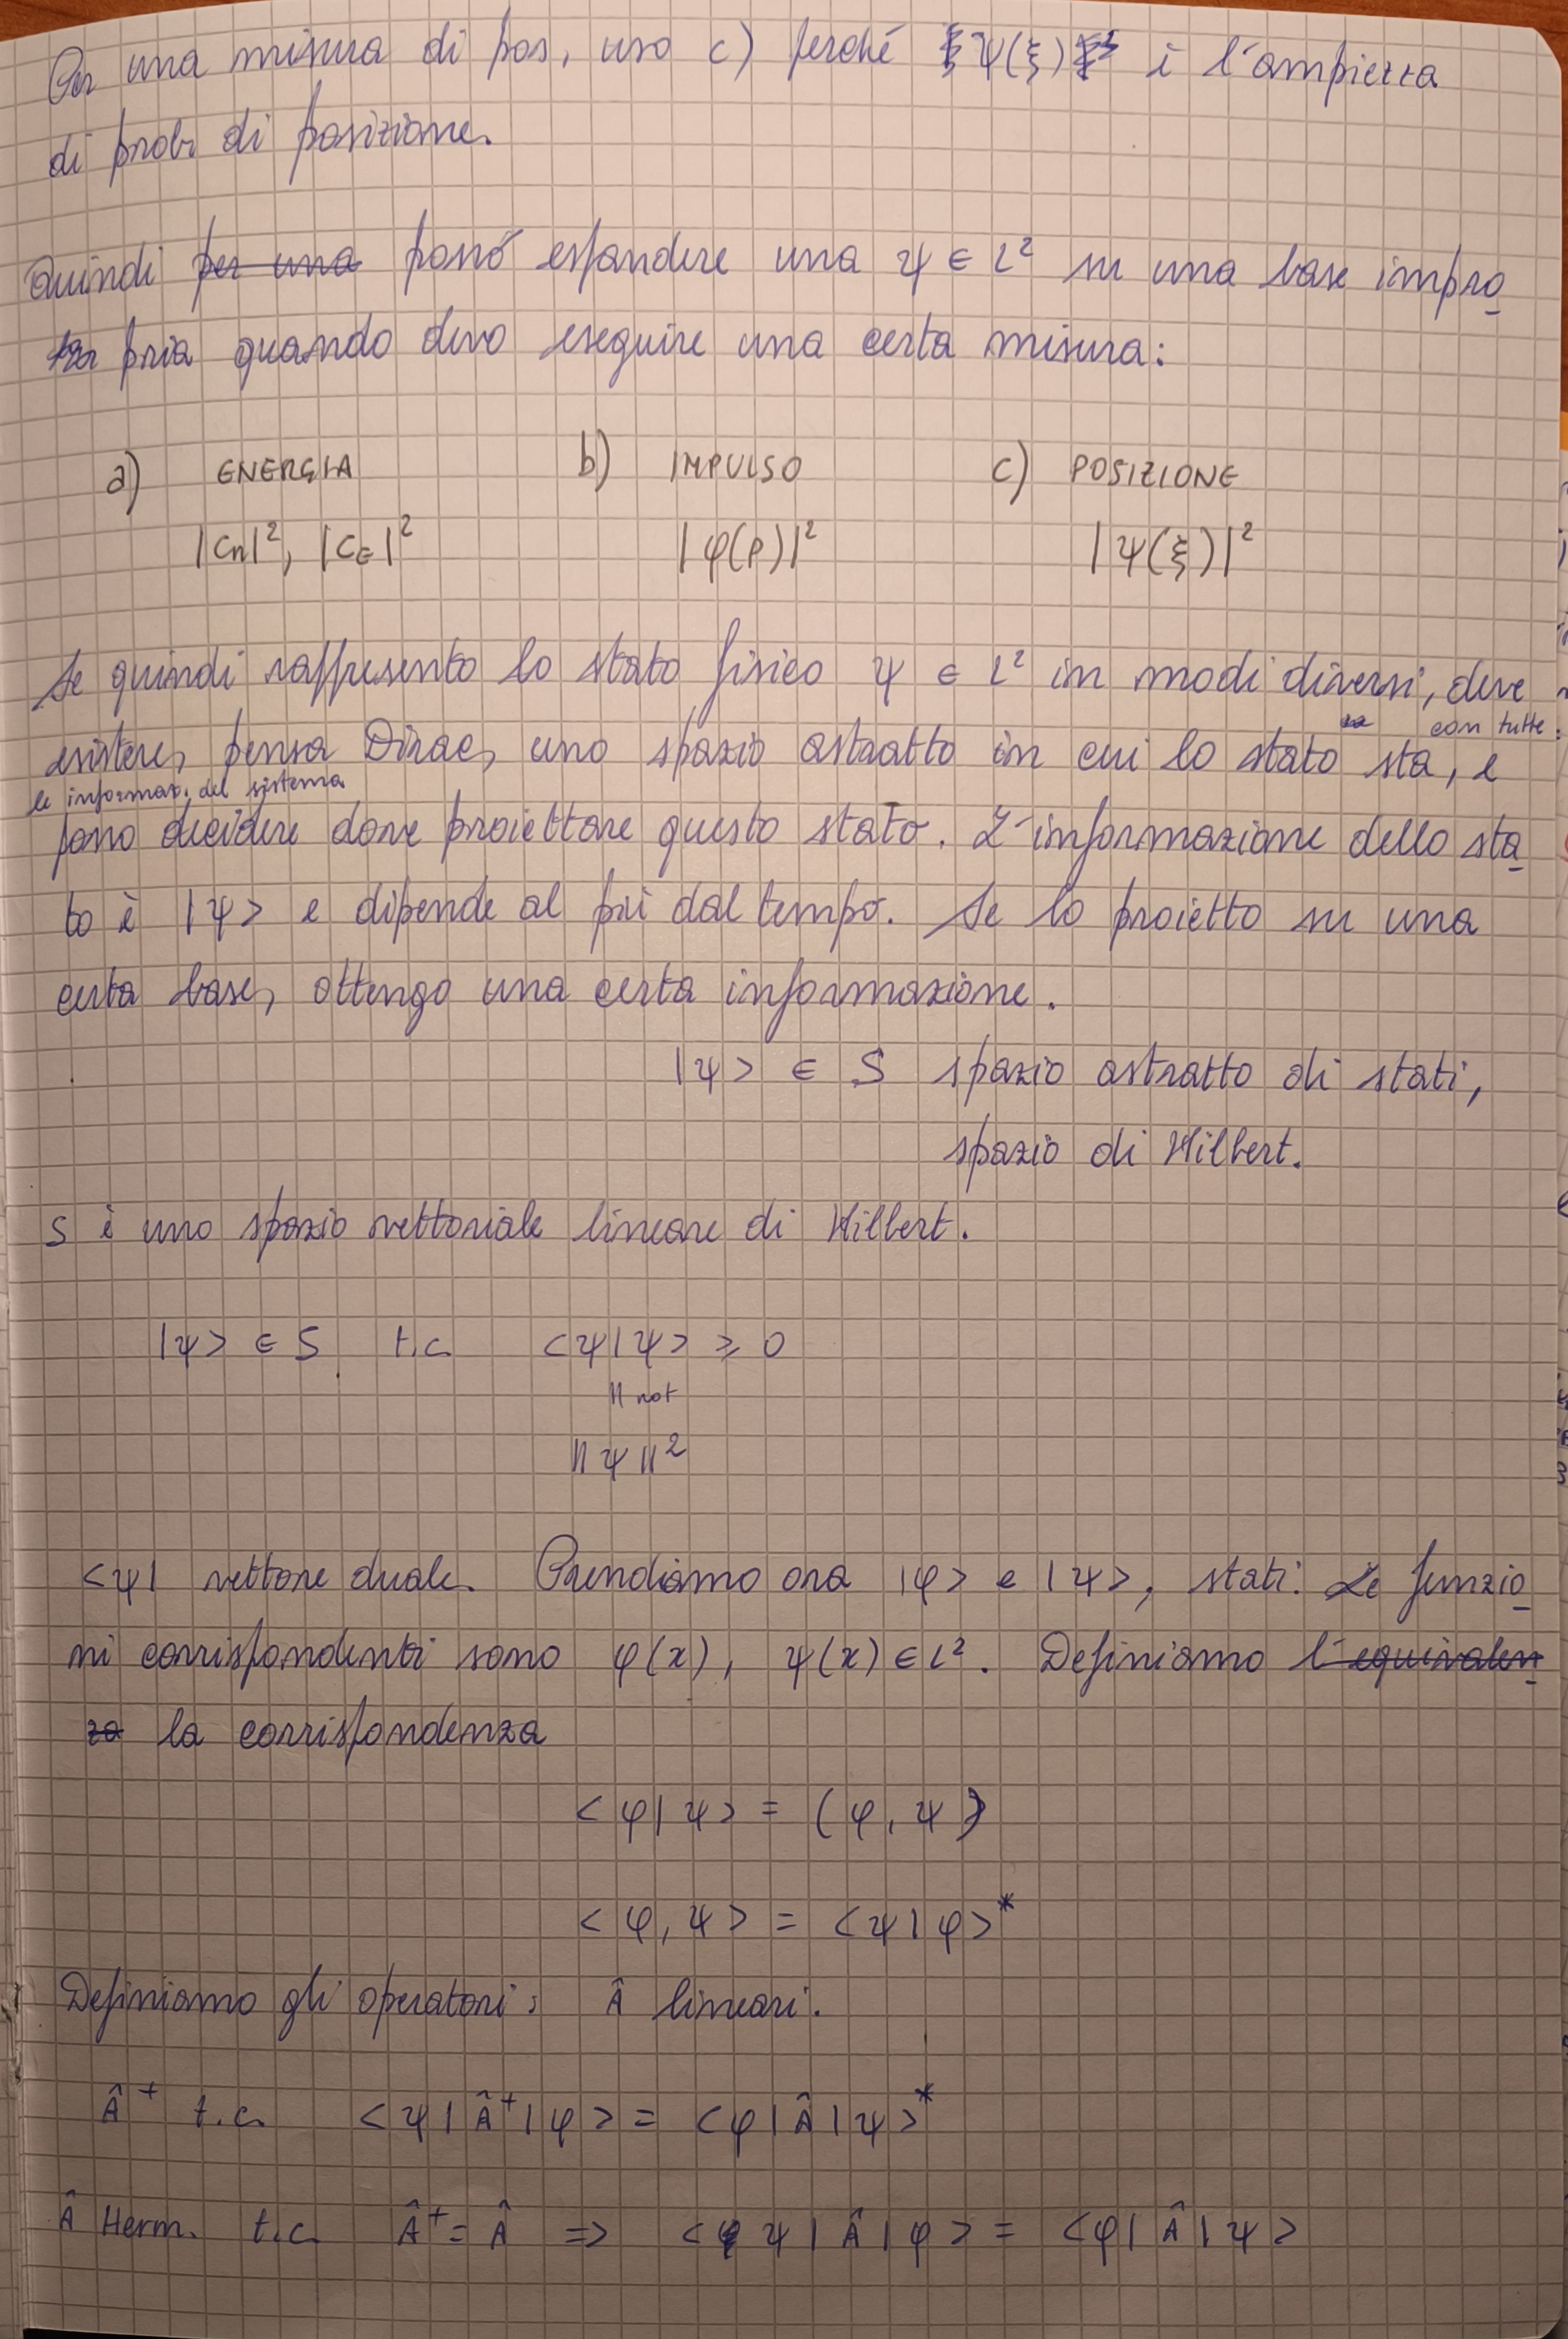 Per una misura di pos, uso c) perché ψ(ξ) è l'ampiezza
di prob. di posizione.
Quindi per una posso espandere una ψ ∈ L² su una base impro
pria quando devo eseguire una certa misura:
a) ENERGIA b) IMPULSO c) POSIZIONE
|Cn|², |C_E|² |φ(p)|² |ψ(ξ)|²
Se quindi rappresento lo stato fisico ψ ∈ L² in modi diversi, deve
esistere, pensa Dirac, uno spazio astratto in cui lo stato sta, e
con tutte
le informaz. del sistema
posso decidere dove proiettare questo stato. L'informazione dello sta
to è |ψ> e dipende al più dal tempo. Se lo proietto su una
certa base, ottengo una certa informazione.
|ψ> ∈ S spazio astratto di stati,
spazio di Hilbert.
S è uno spazio vettoriale lineare di Hilbert.
|ψ> ∈ S t.c. <ψ|ψ> ≥ 0
|| not
||ψ||²
<ψ| vettore duale. Prendiamo ora |φ> e |ψ>, stati. Le funzio
ni corrispondenti sono φ(x), ψ(x) ∈ L². Definiamo l'equivalen
za la corrispondenza
<φ|ψ> = (φ, ψ)
<φ, ψ> = <ψ|φ>*
Definiamo gli operatori: Â lineari.
Â⁺ t.c. <ψ|Â⁺|φ> = <φ|Â|ψ>*
Â Herm. t.c. Â⁺ = Â => <ψ|Â|φ> = <φ|Â|ψ>